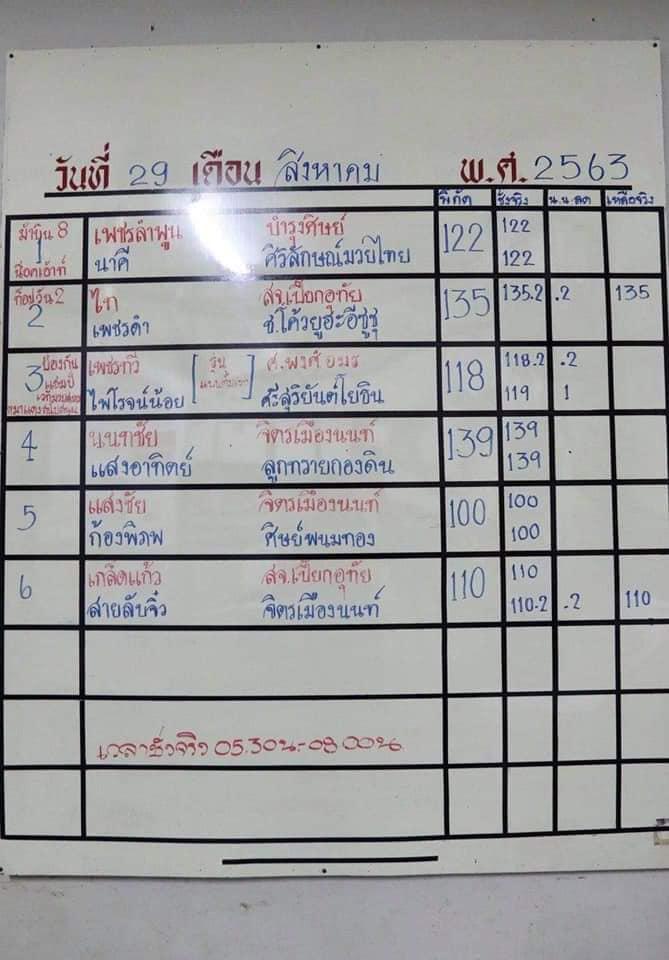 วันที่ 29 เดือน สิงหาคม พ.ศ. 2563
พิกัด ชั่งจริง น.น.ลด เหลือจริง
1 เพชรลำพูน บำรุงศิษย์ 122 122
น็อกเอ้าท์ นาคี ศิวิลักษณ์มวยไทย 122
2 ไท สจ.เปี๊ยกอุทัย 135 135.2 .2 135
เพชรดำ ช.โค้วยูฮะอีซูซุ
3 ป้องกัน เพชรทวี รุ่น ศ.พงศ์อมร 118 118.2 .2
แชมป์ ไพโรจน์น้อย ศรีสุริยันต์โยธิน 119 1
4 นนทชัย จิตรเมืองนนท์ 139 139
แสงอาทิตย์ ลูกทรายกองดิน 139
5 แสงชัย จิตรเมืองนนท์ 100 100
ก้องพิภพ ศิษย์พนมทอง 100
6 เกล็ดแก้ว สจ.เปี๊ยกอุทัย 110 110
สายลับจิ๋ว จิตรเมืองนนท์ 110.2 .2 110
เวลาชั่งจริง 05.30น.-08.00น.